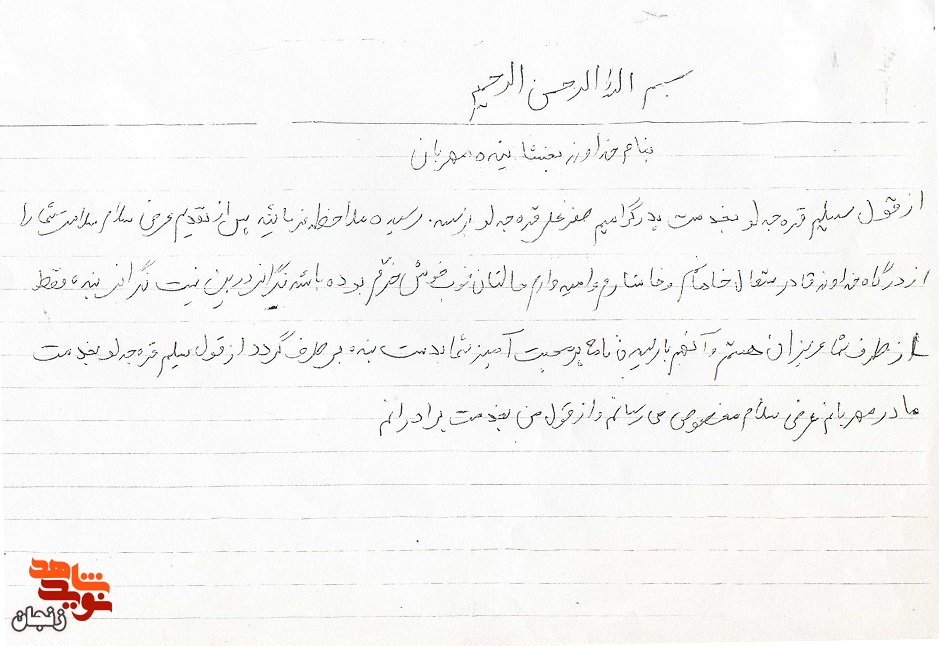 بسم الله الرحمن الرحیم
بنام خداوند بخشاینده مهربان
از قول سلیم قره جه لو بخدمت پدر گرامیم صفرعلی قره جه لو برسد. رسیده ملاحظه فرمائید پس از تقدیم عرض سلام سلامت شما را
از درگاه خداوند قادر متعال خاهانم و خاستارم و امیدوارم حالتان خوب خوش خرّم بوده باشد نگرانی در بین نیست نگرانی بنده فقط
از طرف شما عزیزان هستم و آنهم با رسیدن نامه پر محبت آمیز شما بدست بنده بر طرف گردد از قول سلیم قره جه لو بخدمت
مادر مهربانم عرض سلام مخصوص می رسانم و از قول من بخدمت برادرانم
نوید شاهد
زنجان